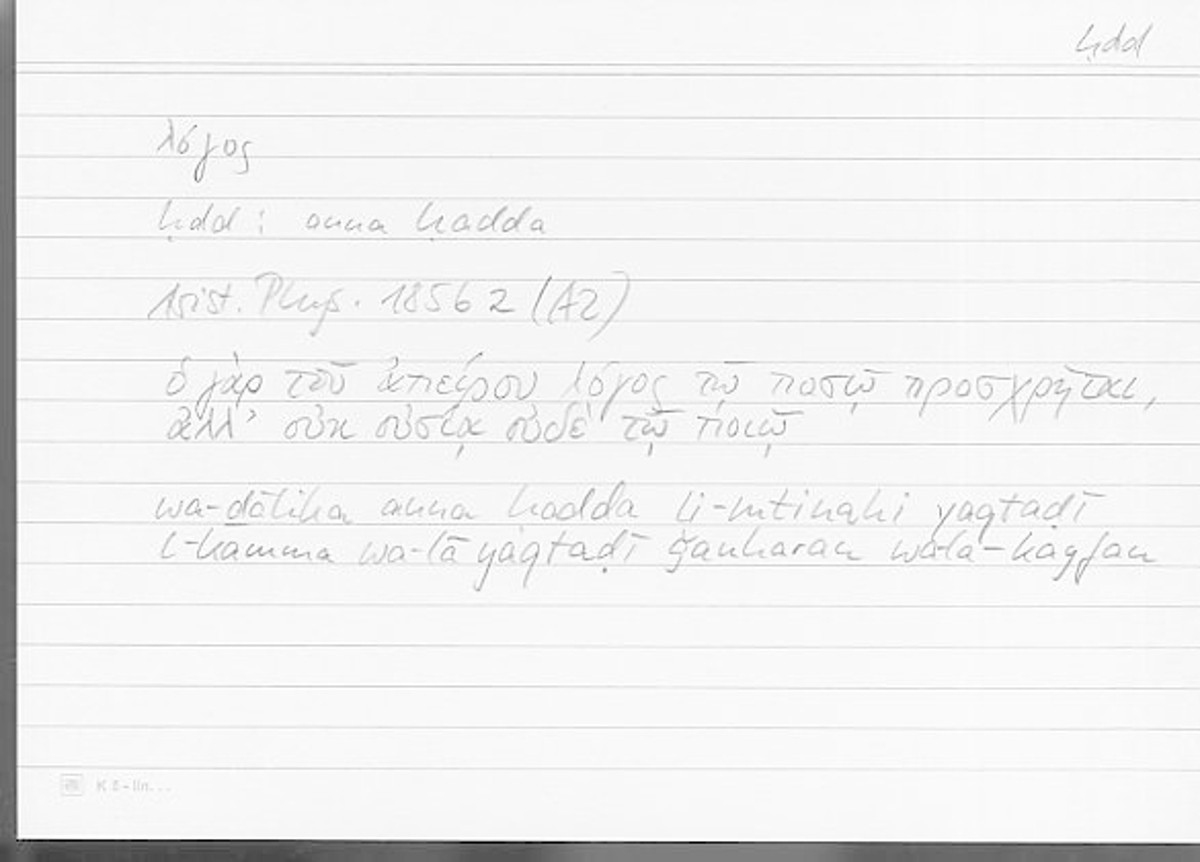 ḥdd
λόγος
ḥdd : anna ḥadda
Arist. Phys. 185b 2 (A2)
ὁ γὰρ τοῦ ἀπείρου λόγος τῷ ποσῷ προσχρῆται,
ἀλλ’ οὐκ οὐσίᾳ οὐδὲ τῷ ποιῷ
wa-ḏālika anna ḥadda yaqtaḍī
l-kamma wa-lā yaqtaḍī ǧauharan wa-lā-kayfan